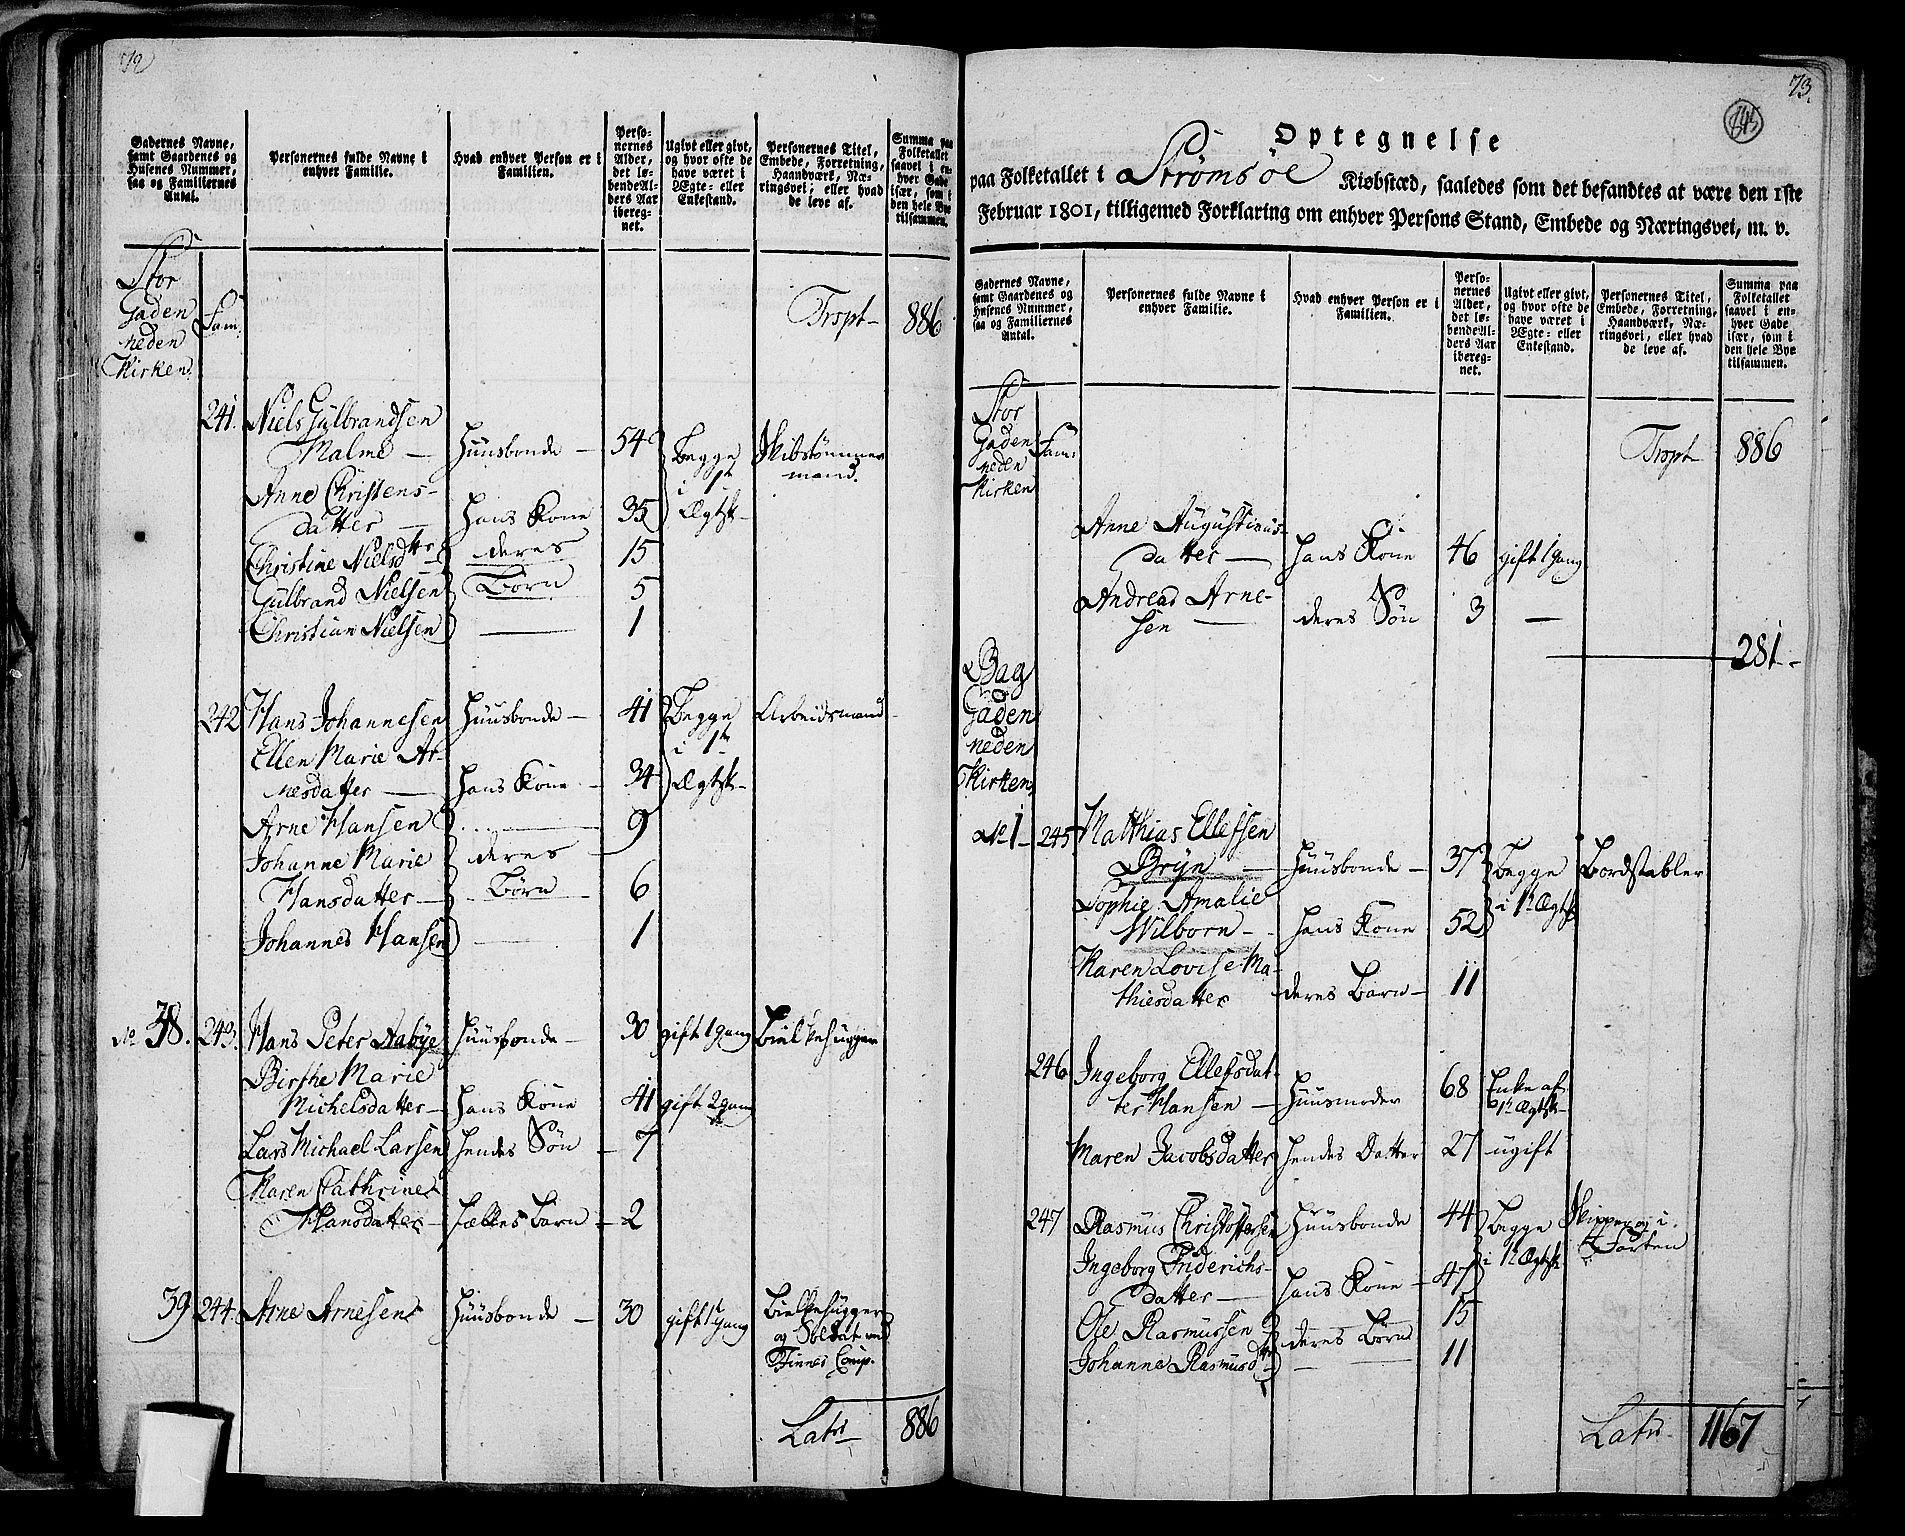 72
Gadernes Navne,
samt Gaardenes og
Husenes Nummer,
saa og Familiernes
Antal.
Personernes fulde Navne i
enhver Familie.
Hvad enhver Person er i
Familien.
Perso-
nernes
Alder,
det lø-
bende Al-
ders Aar
ibereg-
net.
Ugivt eller givt,
og hvor ofte de
have været i
Ægte- eller
Enkestand.
Personernes Titel,
Embede, Forretning,
Haandværk, Næ-
ringsvei; eller hvad
de leve af.
Summa paa
Folketallet
saavel i en-
hver Gade
især, som i
den hele Bye
tilsammen.
Stor
Gaden
neden
Kirken.
Fam.
Trspt 886
241. Niels Gulbrandsen
Malme — Huusbonde — 54 Begge Skibstømmer
i 1st mand.
Anne Christens-
datter — Hans Kone 35 Ægtsk-
Christine Nielsdtr deres 15
Gulbrand Nielsen Børn 5
Christian Nielsen — 1
242 Hans Johannesen Huusbonde — 41 Begge Arbeidsmand
Ellen Marie Ar- i 1te
nesdatter — Hans Kone — 34 Ægtsk-
Arne Hansen — 9
Johanne Marie deres
Hansdatter — Børn — 6
Johannes Hansen — 1
No 38. 243. Hans Peter Aabye Huusbonde — 30 gift 1 gang Bielkehugger
Birthe Marie
Michelsdatter — Hans Kone 41 gift 2 gang
Lars Michael Larsen Hendes Søn — 7
Karen Cathrine
Hansdatter — Fælles Barn — 2
39 244. Arne Arnesen Huusbonde — 30 gift 1 Gang Bielkehugger
og Soldat ved
Comp.
Lats 886
73.
Optegnelse
paa Folketallet i Strømsøe Kiøbstæd, saaledes som det befandtes at være den 1ste
Februar 1801, tilligemed Forklaring om enhver Persons Stand, Embede og Næringsvei, m. v.
Gadernes Navne,
samt Gaardenes og
Husenes Nummer,
saa og Familiernes
Antal.
Personernes fulde Navne i
enhver Familie.
Hvad enhver Person er i
Familien.
Perso-
nernes
Alder,
det lø-
bende Al-
ders Aar
ibereg-
net.
Ugivt eller givt,
og hvor ofte de
have været i
Ægte- eller
Enkestand.
Personernes Titel,
Embede, Forretning,
Haandværk, Næ-
ringsvei, eller hvad
de leve af.
Summa paa
Folketallet
saavel i en-
hver Gade
især, som i
den hele Bye
tilsammen.
Stor
Gaden
neden
Kirken
Fam:
Trspt 886
Anne Augustinus-
datter — Hans Kone 46 gift 1 gang
Andreas Arne-
sen — deres Søn 3 —
281-
Bag
Gaden
neden
Kirken
No 1 245 Matthias Ellefsen
Bryn — Huusbonde — 37 Begge Bordstabler
Sophie Amalie i 1te Ægtsk
Wilborn — Hans Kone 52
Karen Lovise Ma-
thiesdatter deres Barn — 11
246 Ingeborg Ellefsdat-
ter Hansen — Huusmoder 68 Enke af
1te Ægtsk-
Maren Jacobsdatter Hendes Datter 27 ugift
247 Rasmus Christoffersen Huusbonde 44 Begge Skipper i
i 1te Ægtsk Farten
Ingeborg Friderichs-
datter — Hans Kone — 47
Ole Rasmussen deres Børn 15
Johanna Rasmusdtr — 11
Lats 1167